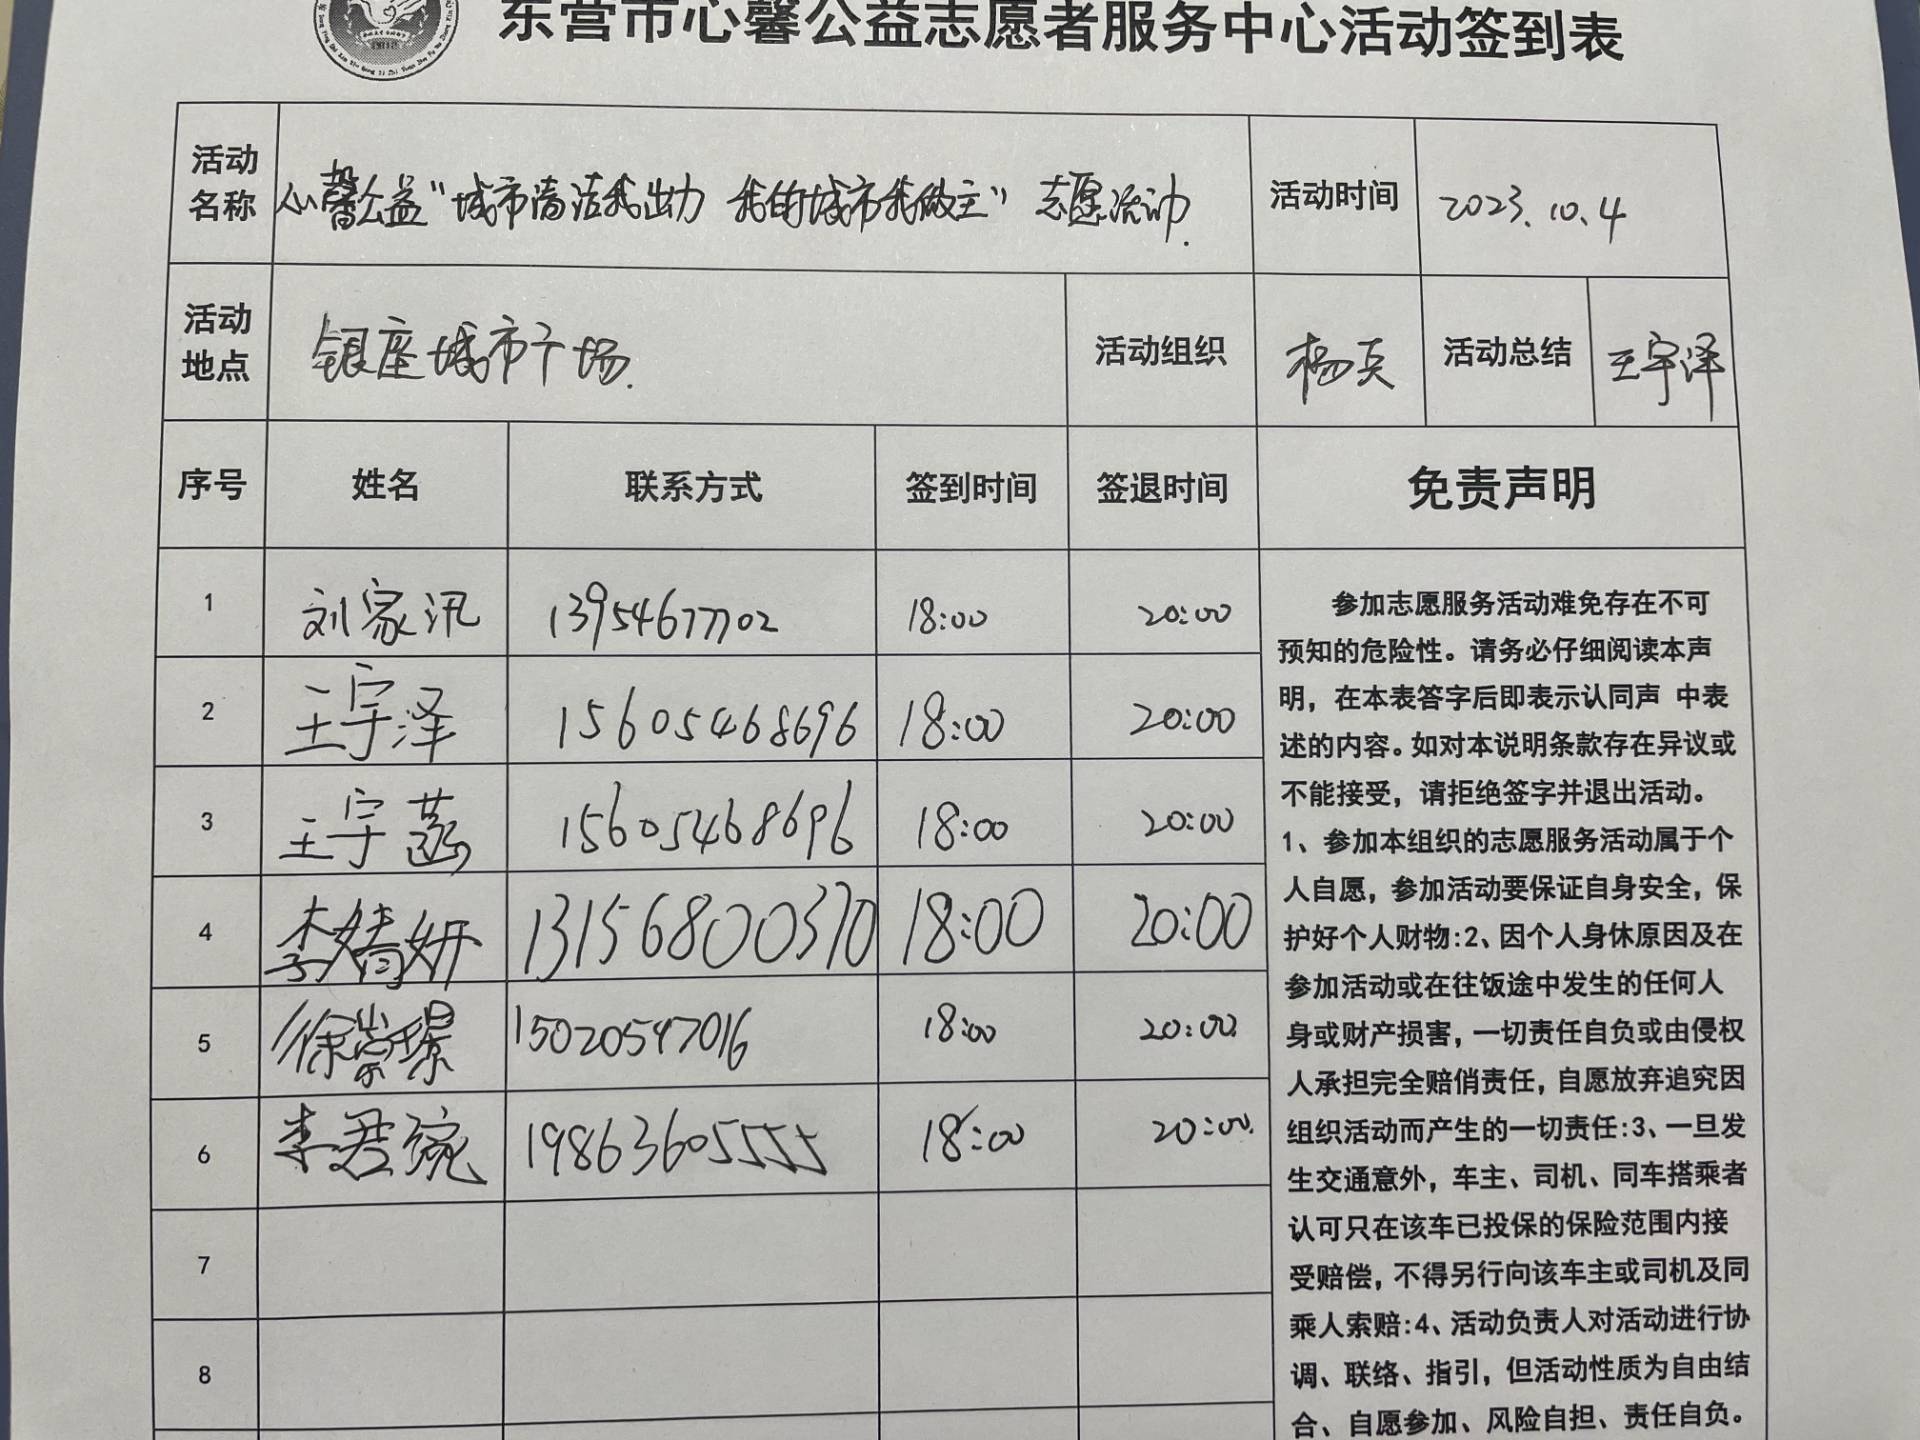 东营市心馨公益志愿者服务中心活动签到表
活动名称 心馨公益“城市清洁我出力 我的城市我做主”志愿活动. 活动时间 2023.10.4
活动地点 银座城市广场. 活动组织 杨贞 活动总结 王宇泽
序号 姓名 联系方式 签到时间 签退时间 免责声明
1 刘家汛 13954677702 18:00 20:00
2 王宇泽 15605468696 18:00 20:00
3 王宇菡 15605468696 18:00 20:00
4 李婧妍 13156800370 18:00 20:00
5 徐崇璟 15020547016 18:00 20:00
6 李君琬 19863605555 18:00 20:00.
7
8
参加志愿服务活动难免存在不可
预知的危险性。请务必仔细阅读本声
明，在本表答字后即表示认同声 中表
述的内容。如对本说明条款存在异议或
不能接受，请拒绝签字并退出活动。
1、参加本组织的志愿服务活动属于个
人自愿，参加活动要保证自身安全，保
护好个人财物:2、因个人身休原因及在
参加活动或在往饭途中发生的任何人
身或财产损害，一切责任自负或由侵权
人承担完全赔俏责任，自愿放弃追究因
组织活动而产生的一切责任:3、一旦发
生交通意外，车主、司机、同车搭乘者
认可只在该车已投保的保险范围内接
受赔偿，不得另行向该车主或司机及同
乘人索赔:4、活动负责人对活动进行协
调、联络、指引，但活动性质为自由结
合、自愿参加、风险自担、责任自负。